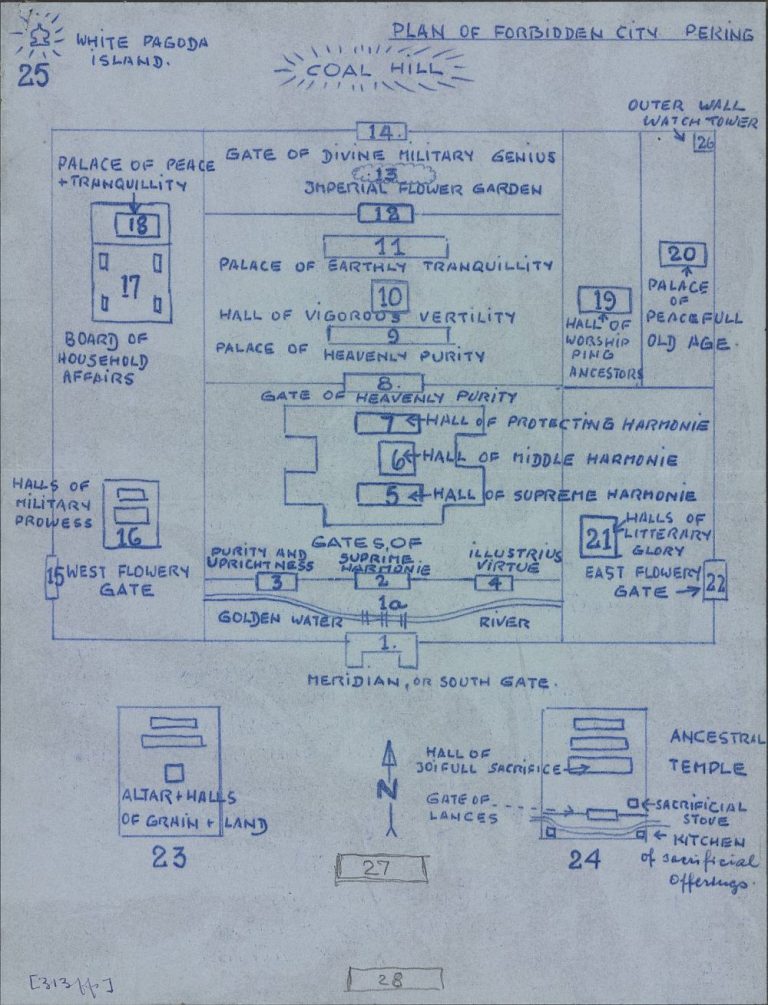 PLAN OF FORBIDDEN CITY PEKING
WHITE PAGODA
ISLAND.
25
COAL HILL
OUTER WALL
WATCH TOWER
26
14.
GATE OF DIVINE MILITARY GENIUS
13
IMPERIAL FLOWER GARDEN
12
PALACE OF PEACE
+ TRANQUILLITY
18
17
BOARD OF
HOUSEHOLD
AFFAIRS
11
PALACE OF EARTHLY TRANQUILLITY
10
HALL OF VIGOROUS VERTILITY
9
PALACE OF HEAVENLY PURITY
8.
GATE OF HEAVENLY PURITY
19
HALL OF
WORSHIP
PING
ANCESTORS
20
PALACE
OF
PEACEFULL
OLD AGE.
7 HALL OF PROTECTING HARMONIE
6 HALL OF MIDDLE HARMONIE
5 HALL OF SUPREME HARMONIE
HALLS OF
MILITARY
PROWESS
16
15 WEST FLOWERY
GATE
21
HALLS OF
LITTERARY
GLORY
EAST FLOWERY
GATE
22
GATES OF
PURITY AND
UPRICHTNESS
3
SUPRIME
HARMONIE
2
ILLUSTRIUS
VIRTUE
4
1a
GOLDEN WATER RIVER
1.
MERIDIAN, OR SOUTH GATE.
ALTAR + HALLS
OF GRAIN + LAND
23
N
HALL OF
JOIFULL SACRIFICE
GATE OF
LANCES
ANCESTRAL
TEMPLE
SACRIFICIAL
STOVE
KITCHEN
of sacrificial
Offerings.
24
27
28
[313pp]